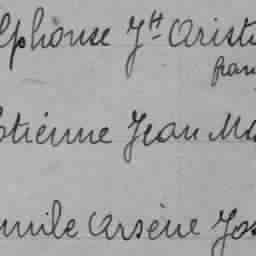 lphonse Jh Aristi
fran
tienne Jean Ma
mile Arsène Jos